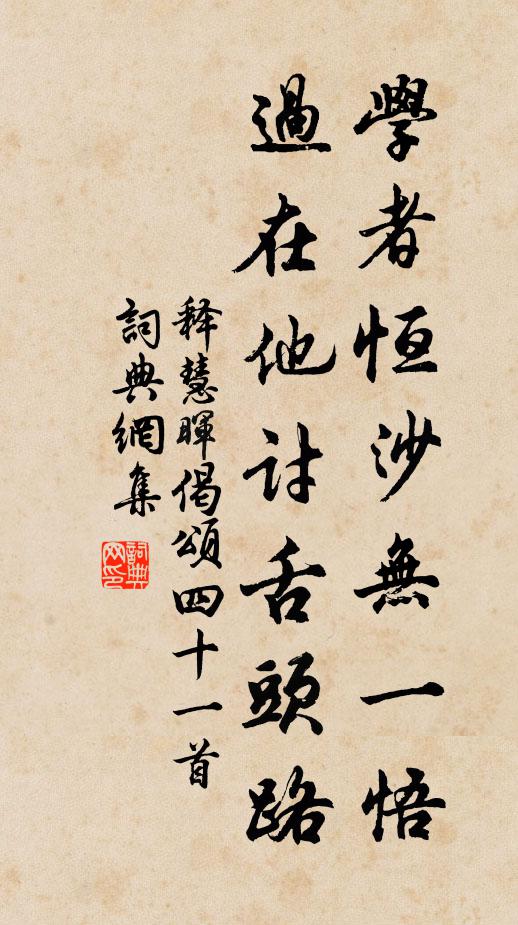 學者恒沙無一悟
過在他討舌頭路
釋慧暉偈頌四十一首
詞典網集
詞典
网印